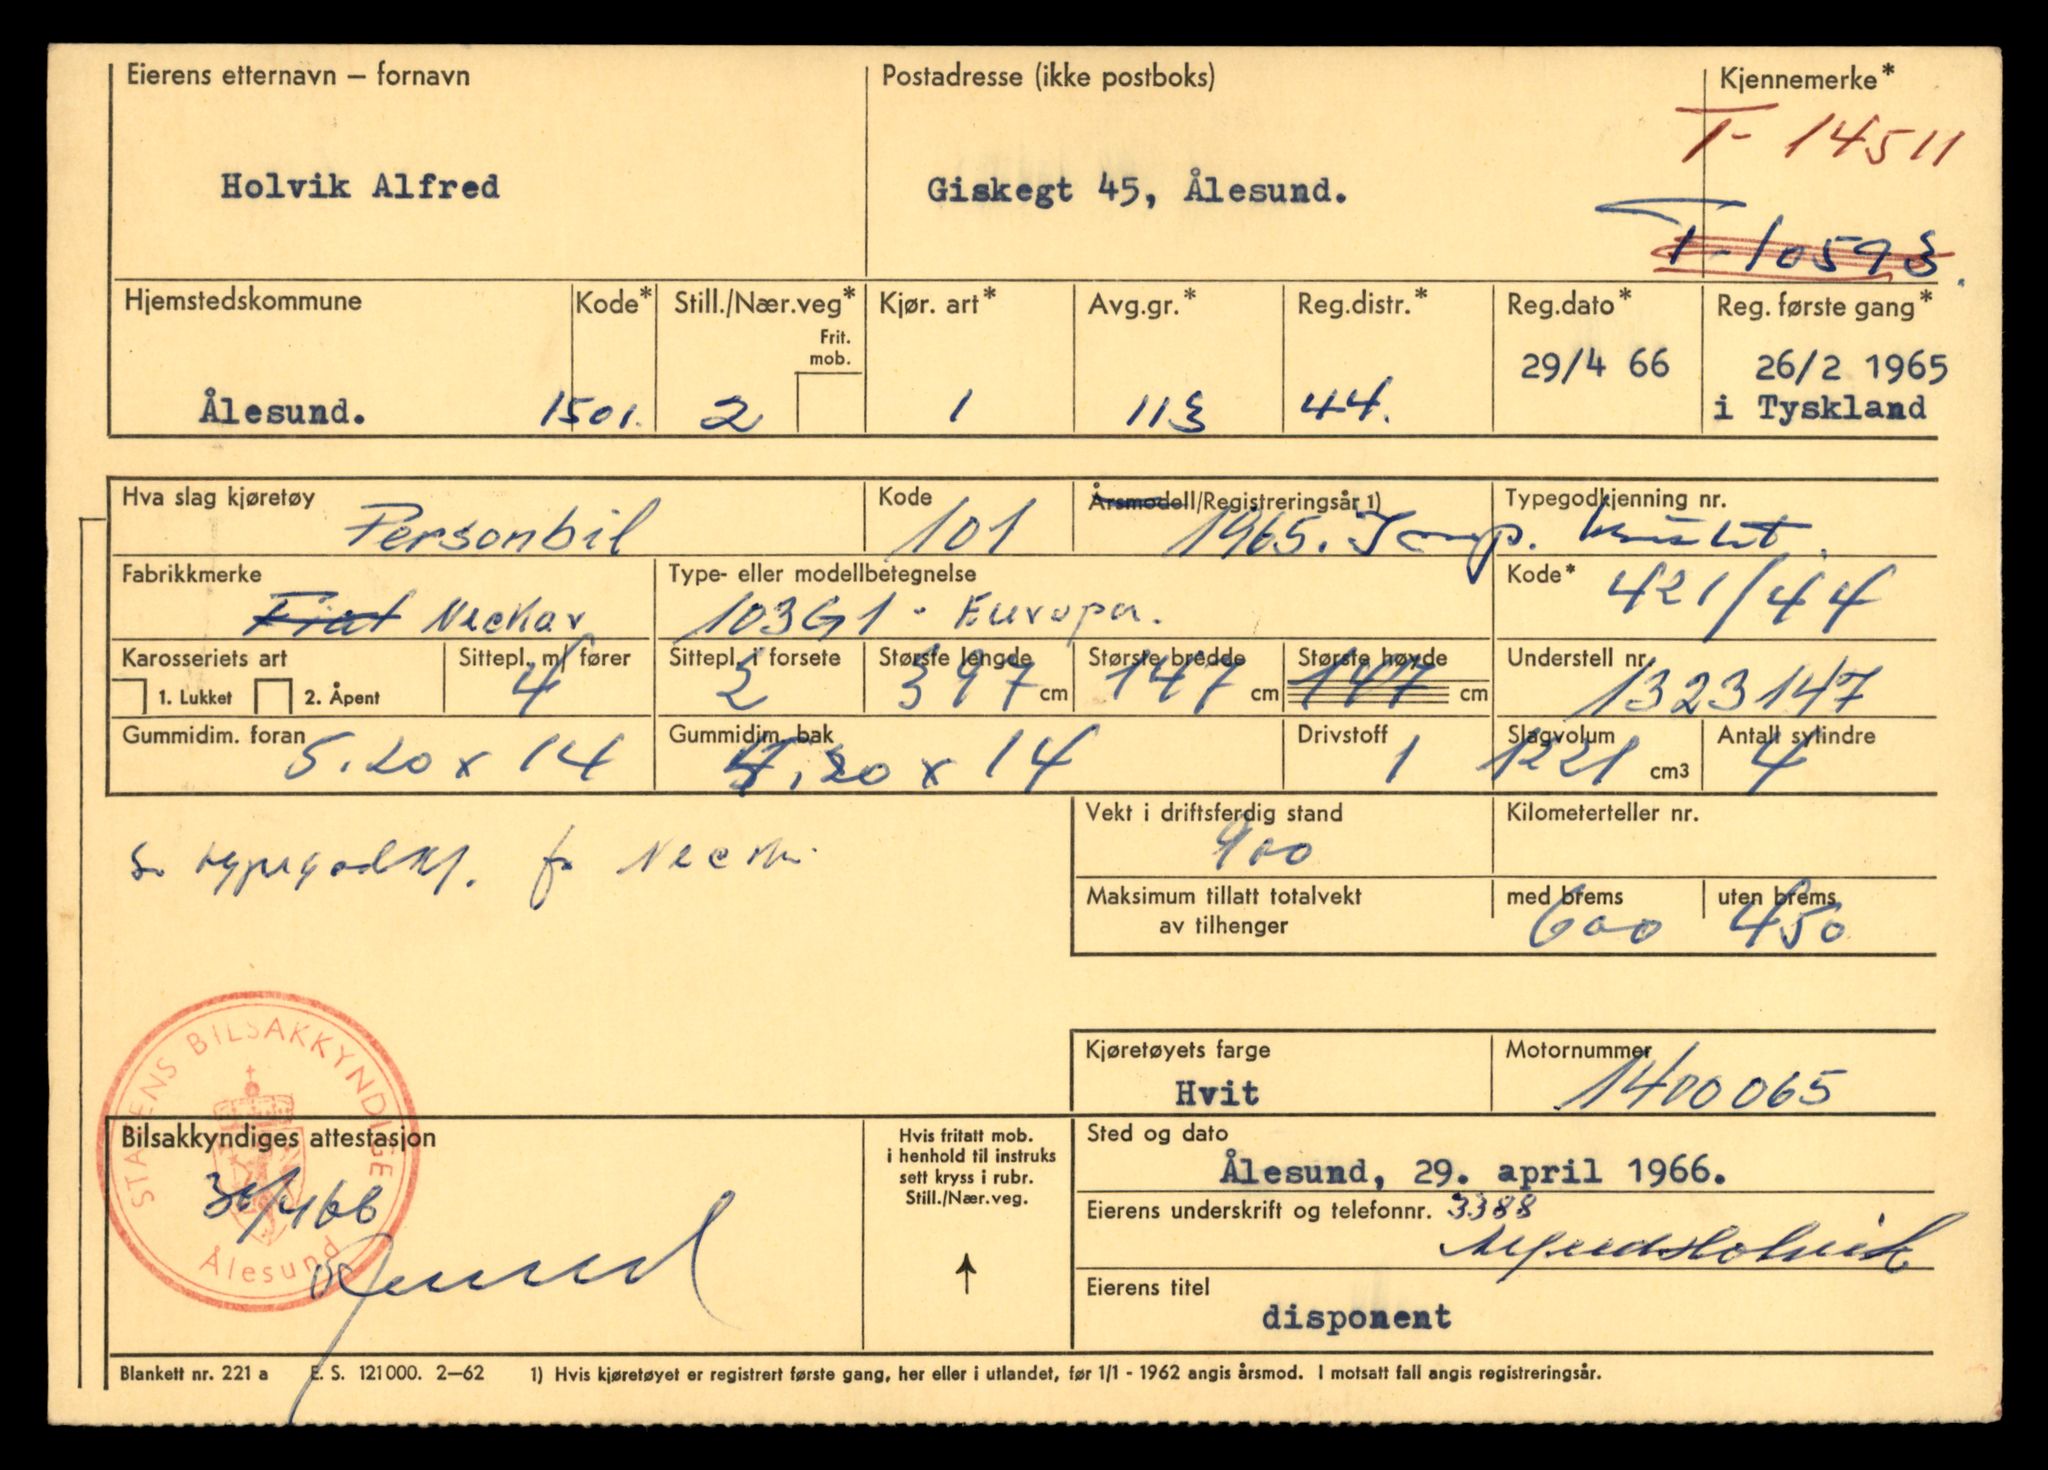 Eierens etternavn – fornavn Postadresse (ikke postboks) Kjennemerke*
T- 14511
Holvik Alfred Giskegt 45, Ålesund.
T-10593.
Hjemstedskommune Kode* Still./Nær.veg* Kjør. art* Avg.gr.* Reg.distr.* Reg.dato* Reg. første gang*
Frit. mob.
29/4 66 26/2 1965
Ålesund. 1501. 2 1 113 44. i Tyskland
Hva slag kjøretøy Kode Årsmodell/Registreringsår 1) Typegodkjenning nr.
Personbil 101 1965. Imp.
Fabrikkmerke Type- eller modellbetegnelse Kode*
Fiat Neckar 103G1 - Europa. 421/44
Karosseriets art Sittepl. m/ fører Sittepl. i forsete Største lengde Største bredde Største høyde Understell nr.
1. Lukket 2. Åpent 4 2 397 cm 147 cm 147 cm 1323147
Gummidim. foran Gummidim. bak Drivstoff Slagvolum Antall sylindre
5.20 x 14 5.20 x 14 1 1221 cm3 4
Vekt i driftsferdig stand Kilometerteller nr.
900
typegodkj.
Maksimum tillatt totalvekt med brems uten brems
av tilhenger 600 450
STATENS BILSAKKYNDIGE
Ålesund
Kjøretøyets farge Motornummer
Hvit 1400065
Bilsakkyndiges attestasjon
30/4 66
Hvis fritatt mob.
i henhold til instruks
sett kryss i rubr.
Still./Nær.veg.
Sted og dato
Ålesund, 29. april 1966.
Eierens underskrift og telefonnr. 3388
Alfred Holvik
Eierens titel
disponent
Blankett nr. 221 a E. S. 121000. 2–62 1) Hvis kjøretøyet er registrert første gang, her eller i utlandet, før 1/1 - 1962 angis årsmod. I motsatt fall angis registreringsår.